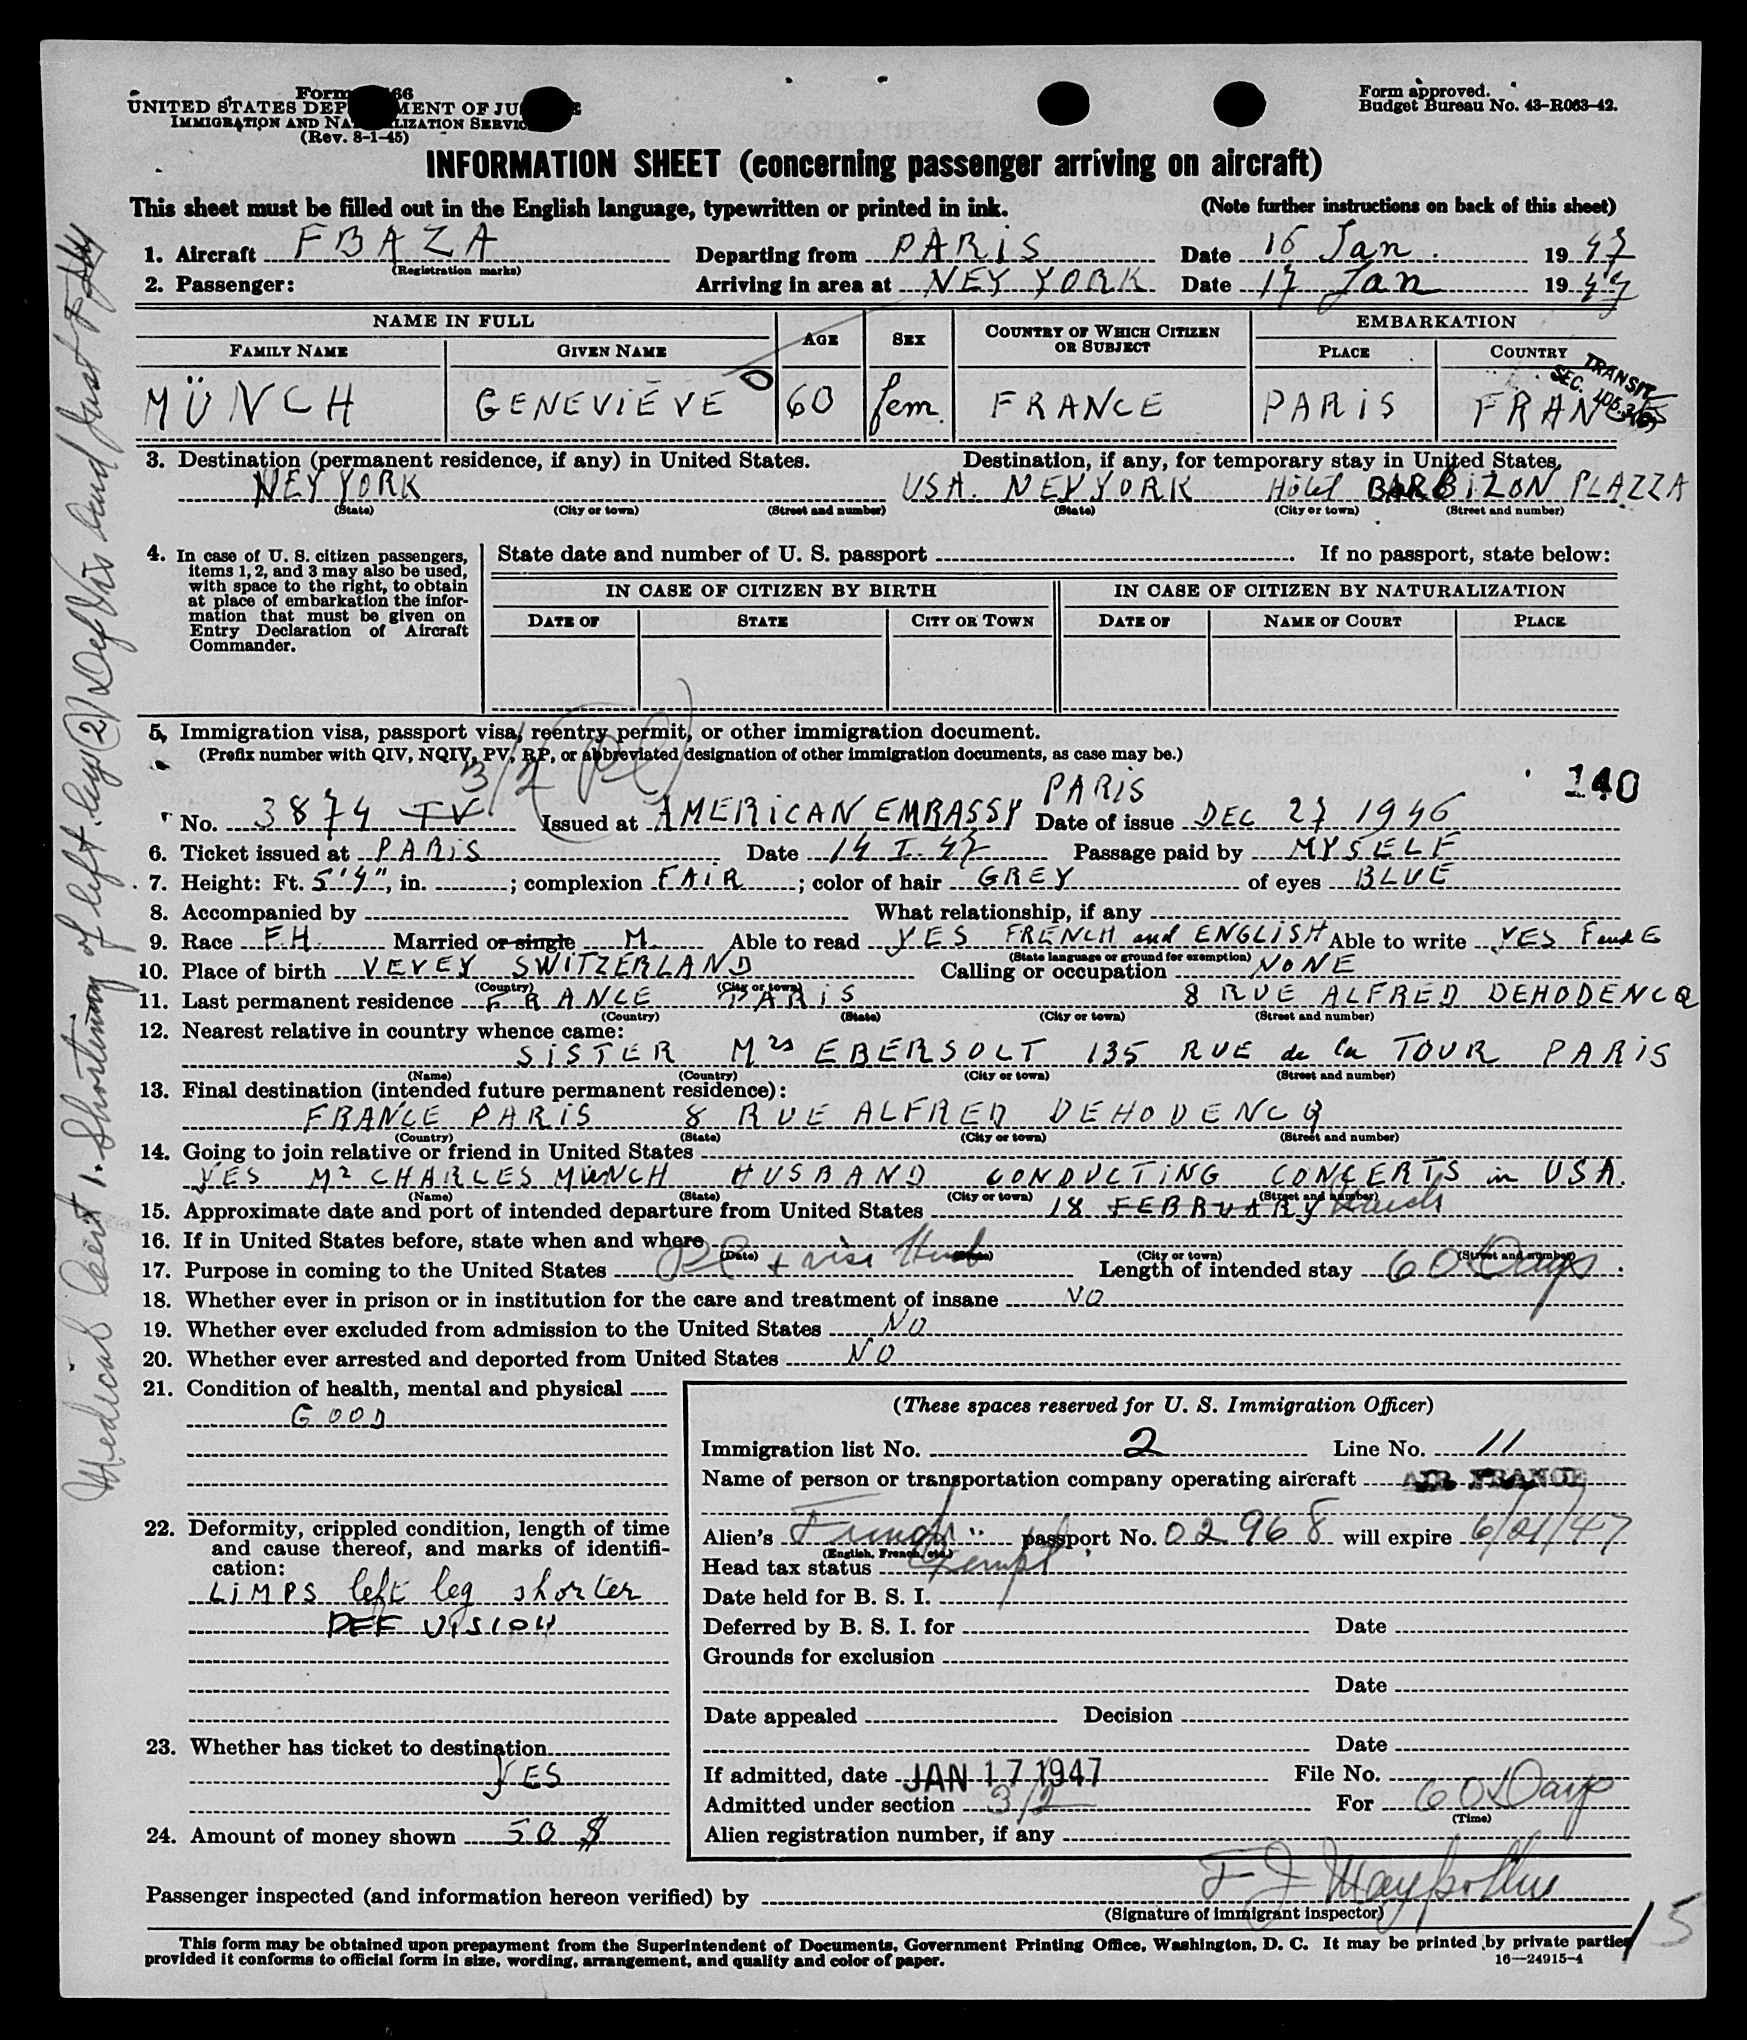 Form 66
UNITED STATES DEP MENT OF JU E
IMMIGRATION AND NA LIZATION SERVIC
(Rev. 8-1-45)
Form approved.
Budget Bureau No. 43-R063-42.
INFORMATION SHEET (concerning passenger arriving on aircraft)
This sheet must be filled out in the English language, typewritten or printed in ink. (Note further instructions on back of this sheet)
1. Aircraft FBAZA Departing from PARIS Date 16 Jan. 1947
(Registration marks)
2. Passenger: Arriving in area at NEY YORK Date 17 Jan 1947
NAME IN FULL AGE SEX COUNTRY OF WHICH CITIZEN OR SUBJECT EMBARKATION
FAMILY NAME GIVEN NAME PLACE COUNTRY
TRANSIT
SEC.
MÜNCH GENEVIÈVE 60 fem. FRANCE PARIS FRANCE
3. Destination (permanent residence, if any) in United States. Destination, if any, for temporary stay in United States.
NEY YORK USA. NEY YORK Hôtel BARBIZON PLAZZA
(State) (City or town) (Street and number) (State) (City or town) (Street and number)
4. In case of U. S. citizen passengers, items 1, 2, and 3 may also be used, with space to the right, to obtain at place of embarkation the information that must be given on Entry Declaration of Aircraft Commander.
State date and number of U. S. passport If no passport, state below:
IN CASE OF CITIZEN BY BIRTH IN CASE OF CITIZEN BY NATURALIZATION
DATE OF STATE CITY OR TOWN DATE OF NAME OF COURT PLACE
5. Immigration visa, passport visa, reentry permit, or other immigration document.
(Prefix number with QIV, NQIV, PV, RP, or abbreviated designation of other immigration documents, as case may be.)
3/2 (Pl)
140
No. 3874 TV Issued at AMERICAN EMBASSY PARIS Date of issue DEC 27 1946
6. Ticket issued at PARIS Date 14 I. 47 Passage paid by MYSELF
7. Height: Ft. 5'4", in. ; complexion FAIR ; color of hair GREY of eyes BLUE
8. Accompanied by What relationship, if any
9. Race F.H. Married or single M. Able to read YES FRENCH and ENGLISH Able to write YES F and E
(State language or ground for exemption)
10. Place of birth VEVEY SWITZERLAND Calling or occupation NONE
(Country) (City or town)
11. Last permanent residence FRANCE PARIS 8 RUE ALFRED DEHODENCQ
(Country) (State) (City or town) (Street and number)
12. Nearest relative in country whence came:
SISTER Mrs EBERSOLT 135 RUE de la TOUR PARIS
(Name) (Country) (City or town) (Street and number)
13. Final destination (intended future permanent residence):
FRANCE PARIS 8 RUE ALFRED DEHODENCQ
(Country) (State) (City or town) (Street and number)
14. Going to join relative or friend in United States
YES Mr CHARLES MUNCH HUSBAND CONDUCTING CONCERTS in USA.
(Name) (State) (City or town) (Street and number)
15. Approximate date and port of intended departure from United States 18 FEBRUARY March
16. If in United States before, state when and where
(Date) (State) (City or town) (Street and number)
17. Purpose in coming to the United States Pl + vis Husb Length of intended stay 60 Days
18. Whether ever in prison or in institution for the care and treatment of insane NO
19. Whether ever excluded from admission to the United States NO
20. Whether ever arrested and deported from United States NO
21. Condition of health, mental and physical
GOOD
22. Deformity, crippled condition, length of time and cause thereof, and marks of identification:
LIMPS left leg shorter
DEF VISION
23. Whether has ticket to destination
YES
24. Amount of money shown 50 $
(These spaces reserved for U. S. Immigration Officer)
Immigration list No. 2 Line No. 11
Name of person or transportation company operating aircraft AIR FRANCE
Alien's French passport No. 02968 will expire 6/21/47
(English, French, etc.)
Head tax status Exempt
Date held for B. S. I.
Deferred by B. S. I. for Date
Grounds for exclusion
Date
Date appealed Decision
Date
If admitted, date JAN 17 1947 File No.
Admitted under section 3/2 For 60 Days
(Time)
Alien registration number, if any
Passenger inspected (and information hereon verified) by
(Signature of immigrant inspector)
15
This form may be obtained upon prepayment from the Superintendent of Documents, Government Printing Office, Washington, D. C. It may be printed by private parties
provided it conforms to official form in size, wording, arrangement, and quality and color of paper.
16—24915-4
Medical Cert 1. Shortening of left leg (2) Def Vis